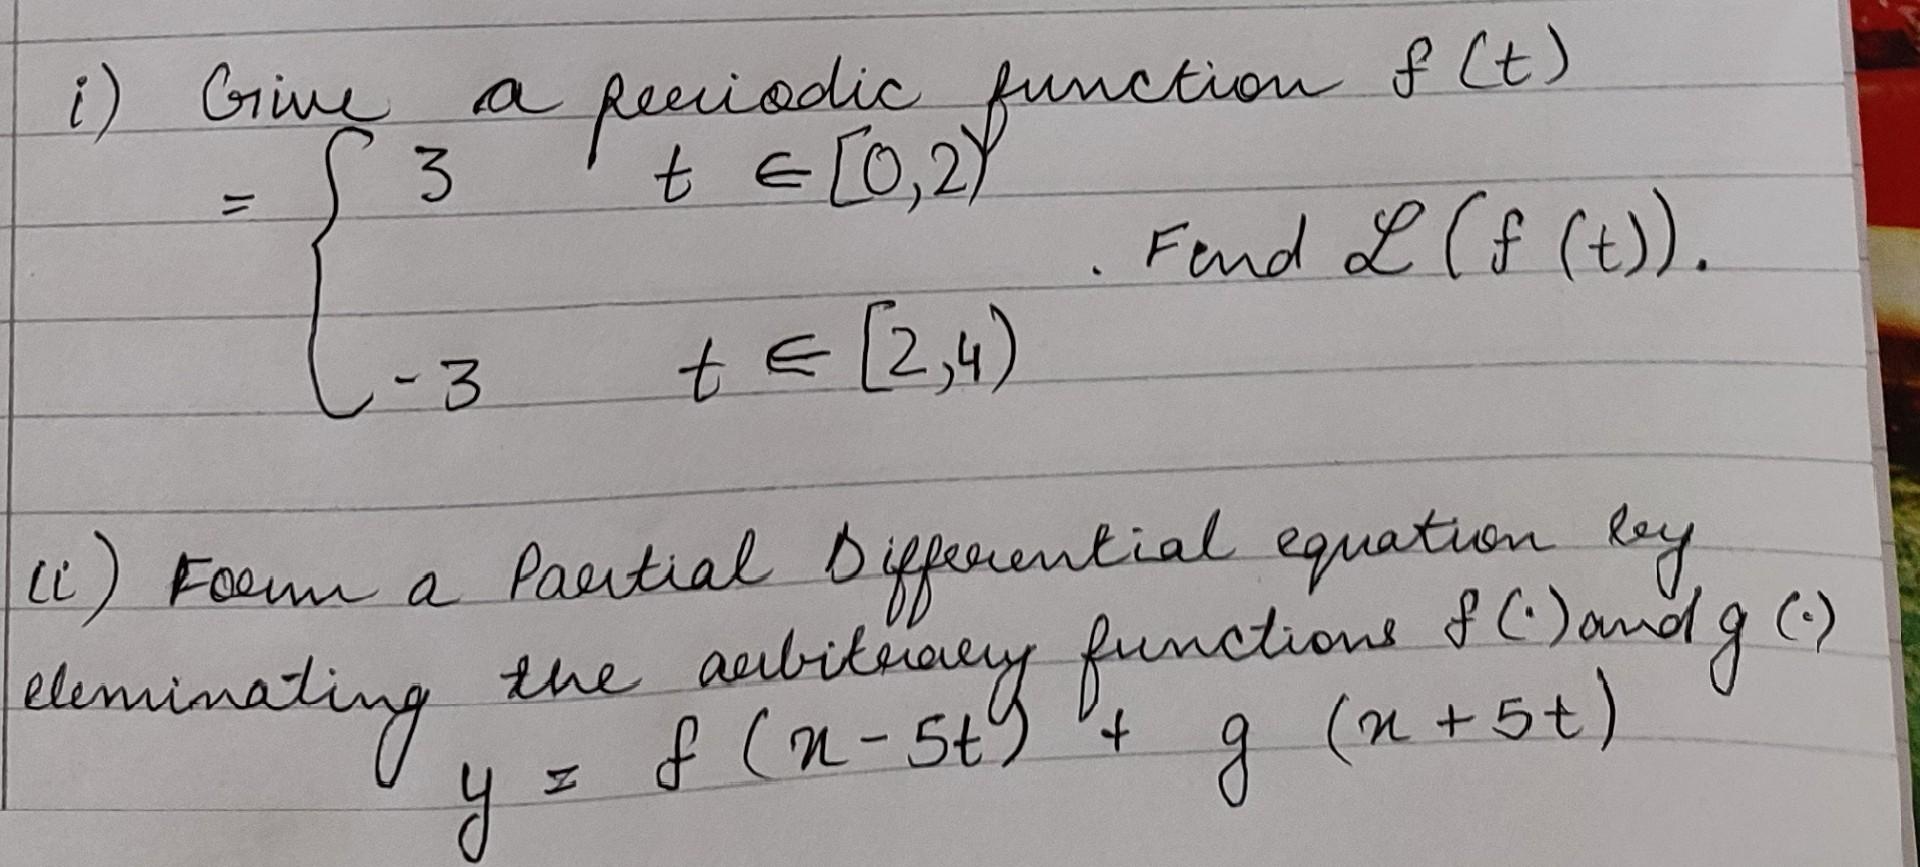 i) Give a periodic function f(t)
= { 3 t ∈ [0,2)
. Find ℒ(f(t)).
-3 t ∈ [2,4)
ii) Form a Partial Differential equation by
eleminating the arbitrary functions f(·) and g(·)
y = f(x-5t) + g(x+5t)